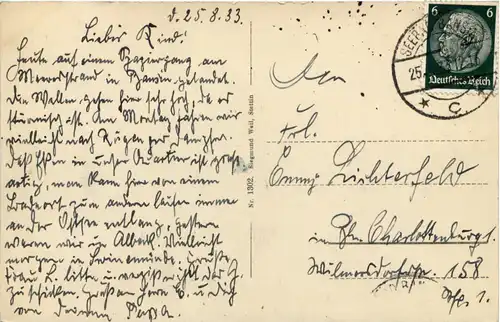 d. 25.8.33.
Liebes Kind!
Heute auf einem Spaziergang am
Meeresstrand in Bansin gelandet.
Die Wellen gehen hier sehr hoch, da es
stürmisch ist. Am Montag fahren wir
vielleicht nach Rügen per Dampfer.
Das Essen in unser Quartier ist groß-
artig, man kann hier von einem
Badeort zum andern laufen immer
an der Ostsee entlang. Gestern
waren wir in Ahlbeck. Vielleicht
morgen in Swinemünde. Grüße
Frau L. bitte u. vergiß nicht
zu schicken. Grüßen Herrn E. u. Dich
von Deinem Papa.
Nr. 1302. Siegmund Weil, Stettin
An
Frl.
Lichterfeld
in Bln Charlottenburg 1.
Wilmersdorferstr. 158
SEEB
25.
C
6
6
Deutsches Reich